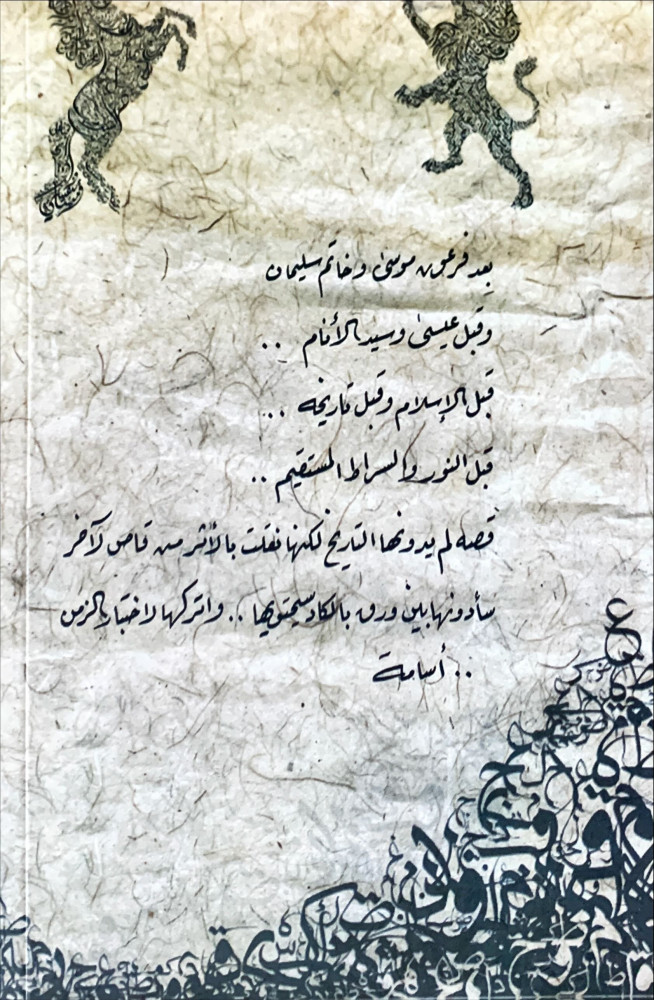 بعد فرعون موسى وخاتم سليمان
وقبل عيسى وسيد الأنام ..
قبل الإسلام وقبل تاريخه ..
قبل النور والسراط المستقيم ..
قصه لم يدونها التاريخ لكنها نقلت بالأثر من قاص لآخر
سأدونها بين ورق بالكاد سيحتويها .. واتركها لاختبار الزمن
.. أسامة